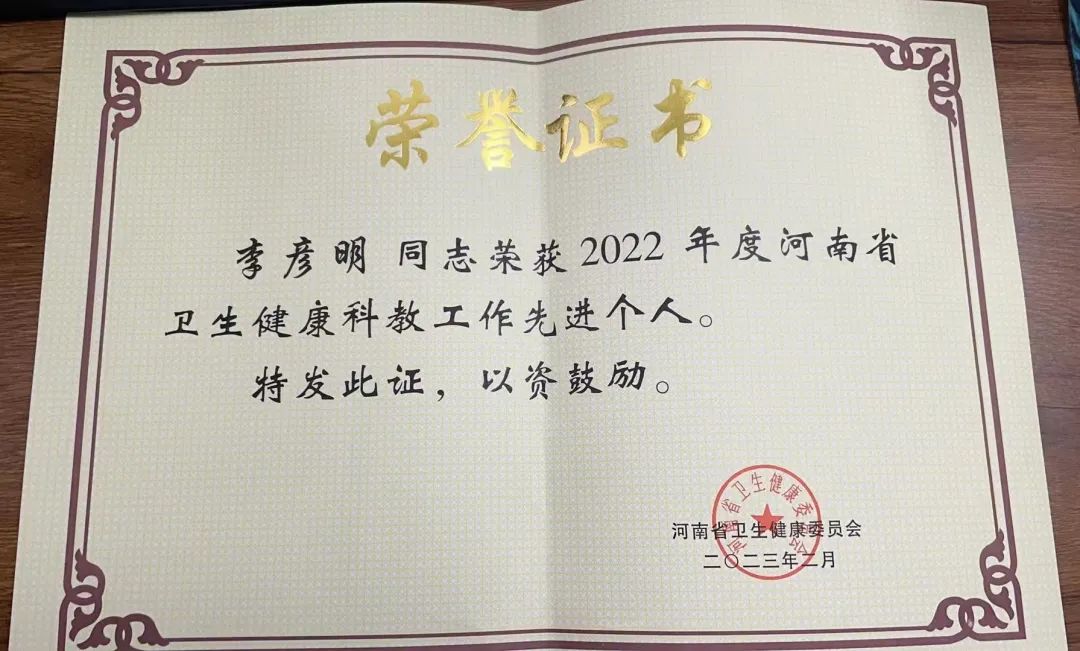 荣誉证书
李彦明 同志荣获2022 年度河南省
卫生健康科教工作先进个人。
特发此证，以资鼓励。
河南省卫生健康委员会
河南省卫生健康委员会
二〇二三年二月